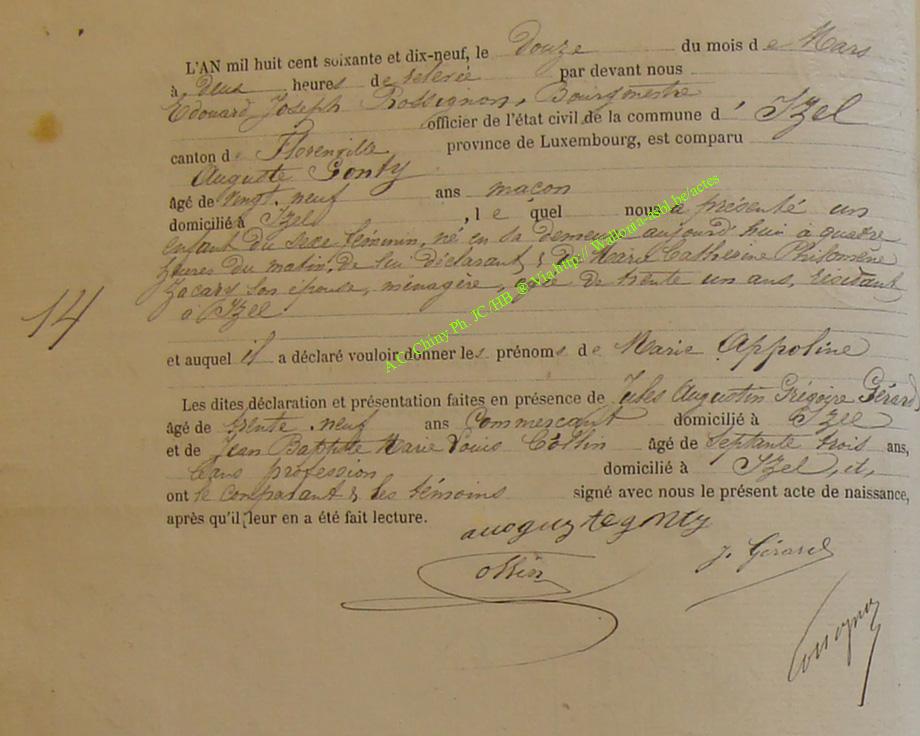 L'AN mil huit cent soixante et dix-neuf, le Douze du mois de Mars
à Deux heures de relevée par devant nous
Edouard Joseph Rossignon, Bourgmestre
officier de l'état civil de la commune d' Izel
canton de Florenville province de Luxembourg, est comparu
Auguste Gonty
âgé de vingt neuf ans maçon
domicilié à Izel, lequel nous a présenté un
enfant du sexe féminin, né en sa demeure aujourd'hui à quatre
heures du matin, de lui déclarant & de Marie Catherine Philomène
Zacary son épouse, ménagère, âgée de trente un ans, résidant
à Izel
14
et auquel il a déclaré vouloir donner les prénoms de Marie Appoline
Les dites déclaration et présentation faites en présence de Jules Augustin Grégoire Gérard
âgé de trente neuf ans Commerçant domicilié à Izel
et de Jean Baptiste Marie Louis âgé de Septante trois ans,
sans profession domicilié à Izel, et
ont le comparant & les témoins signé avec nous le présent acte de naissance,
après qu'il leur en a été fait lecture.
auoguztegonty
J. Gérard
AC Chiny Ph. JC /HB @ Via http:// Wallonia-asbl.be/actes